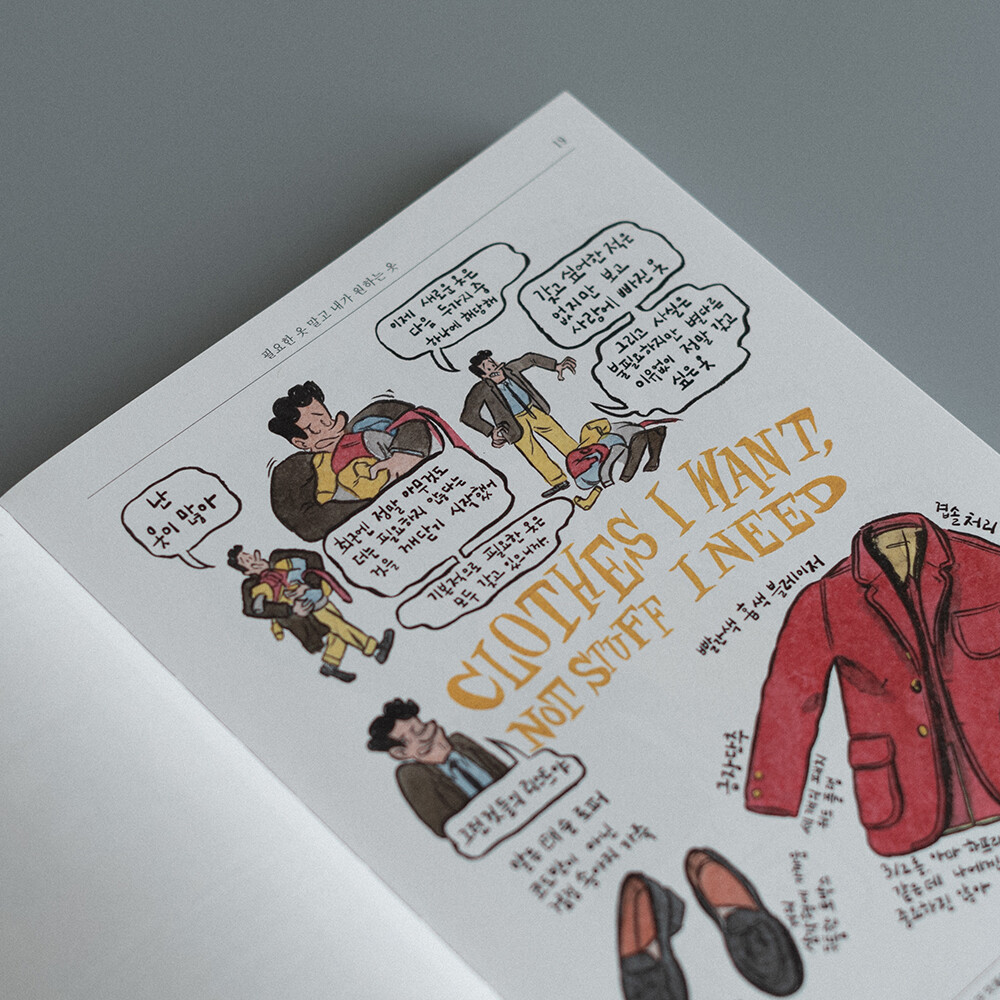 19
필요한 옷 말고 내가 원하는 옷
난
옷이 많아
최근에 정말 아무것도
더는 필요하지 않다는
것을 깨닫기 시작했어
기본적으로 필요한 옷은
모두 갖고 있으니까
이제 새로운 옷은
다음 두가지 중
하나에 해당해
갖고 싶어한 적은
없지만 보고
사랑에 빠진 옷
그리고 사실은
불필요하지만 별다른
이유없이 정말 갖고
싶은 옷
CLOTHES I WANT,
NOT STUFF I NEED
그런 것들의 리스트야
검솔처리
빨간색 홉색 블레이저
금장단추
3/2롤, 아마
같은데 나에게
중요하진 않아